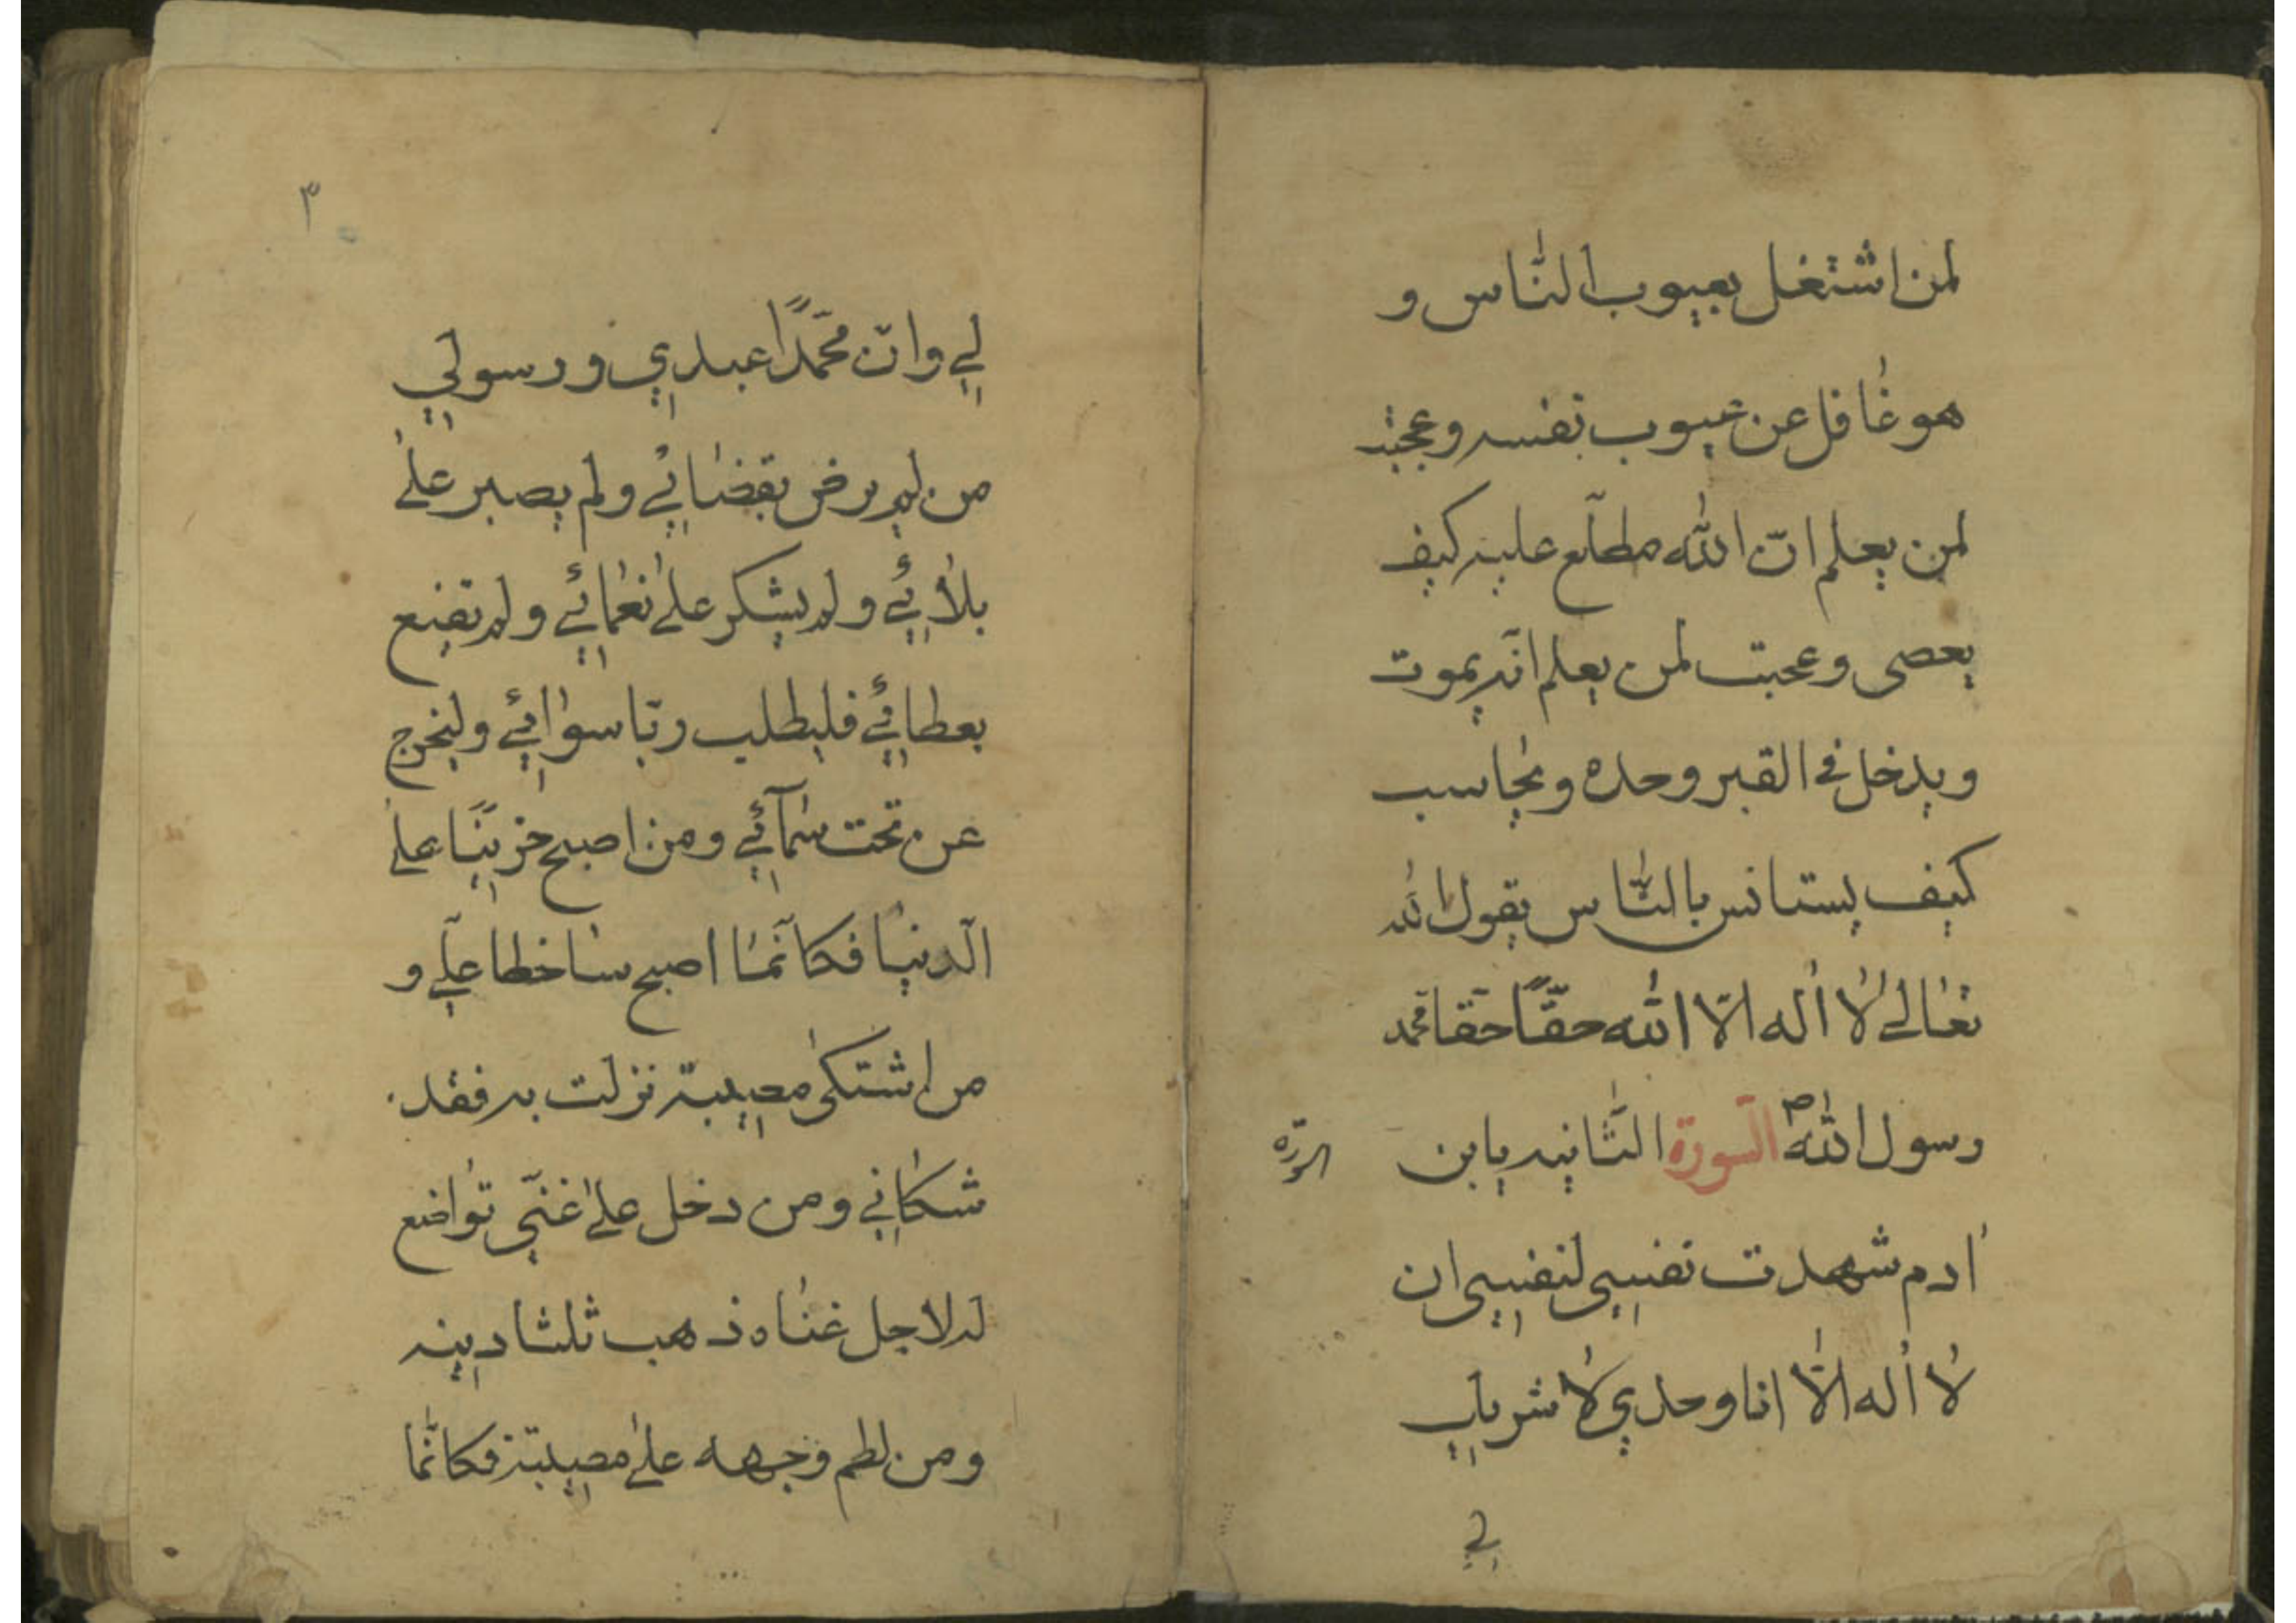 لمن اشتغل بعيوب النّاس و
هو غافل عن عيوب نفسه وعجبت
لمن يعلم انّ اللّه مطّلع عليه كيف
يعصى وعجبت لمن يعلم انّه يموت
ويدخل في القبر وحده ويحاسب
كيف يستانس بالنّاس يقول اللّه
تعالى لا اله الّا اللّه حقّاً حقّا محمّد
رسول اللّه ص السّورة الثّانيه يابن
ادم شهدت نفسي لنفسي ان
لا اله الّا انا وحدي لا شريك
لي
٣
لي وانّ محمّدًا عبدي ورسولي
من لم يرض بقضائي ولم يصبر على
بلائي ولم يشكر على نعمائي ولم تقنع
بعطائي فليطلب ربّا سوائي وليخرج
عن تحت سمآئي ومن اصبح حزينًا على
الّدنيا فكانّما اصبح ساخطا عليّ و
من اشتكى مصيبة نزلت به فقد
شكاني ومن دخل على غنيّ تواضع
له لاجل غناه ذهب ثلثا دينه
ومن لطم وجهه على مصيبة فكانّما